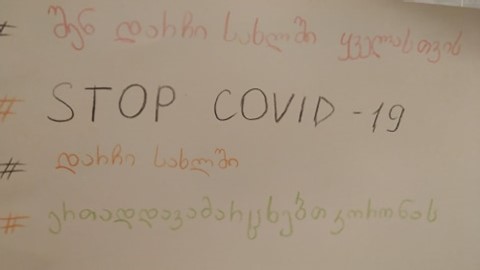 # შენ დარჩი სახლში ყველასთვის
# STOP COVID-19
# დარჩი სახლში
# ერთადდავამარცხებთ კორონას